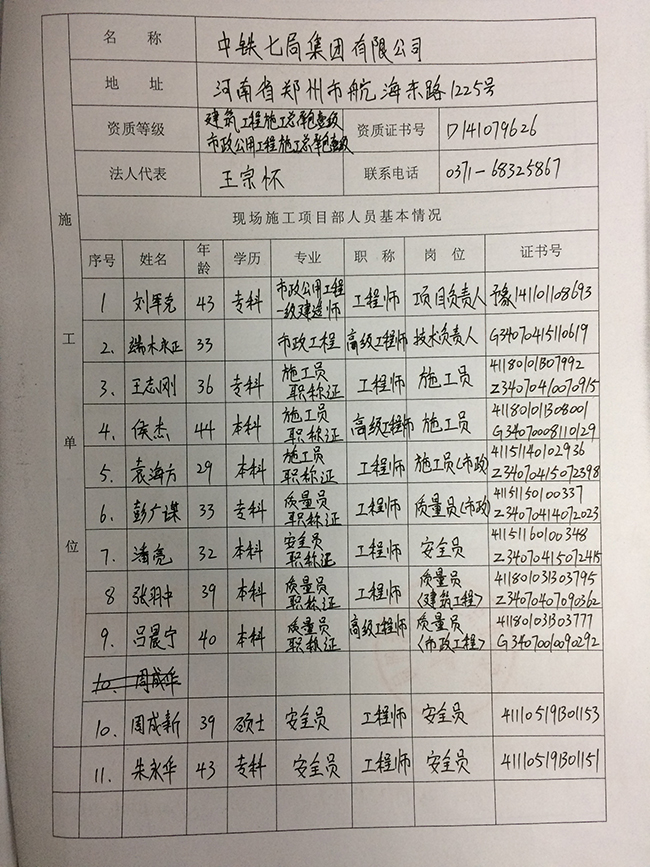 名 称 中铁七局集团有限公司
地 址 河南省郑州市航海东路1225号
资质等级 建筑工程施工总承包壹级 资质证书号 D141079626
市政公用工程施工总承包壹级
法人代表 王宗怀 联系电话 0371-68325867
施工单位
现场施工项目部人员基本情况
序号 姓名 年龄 学历 专业 职 称 岗 位 证书号
1 刘军克 43 专科 市政公用工程 工程师 项目负责人 予豫141101108693
一级建造师
2. 端木永正 33 市政工程 高级工程师 技术负责人 G34070415110619
3. 王志刚 36 专科 施工员 工程师 施工员 41180101307992
职称证 Z34070410070915
4. 侯杰 44 本科 施工员 高级工程师 施工员 41180101308001
职称证 G34070008110129
5. 袁海方 29 本科 施工员 工程师 施工员(市政) 41151140102936
职称证 Z34070415072398
6. 彭广谋 33 专科 质量员 工程师 质量员(市政) 4115115010 0337
职称证 Z34070414072023
7. 潘亮 32 本科 安全员 工程师 安全员 41151160100348
职称证 Z34070415072415
8 张羽中 39 本科 质量员 工程师 质量员 411801031303795
职称证 <建筑工程> Z34070407090362
9. 吕晨宁 40 本科 质量员 高级工程师 质量员 411801031303777
职称证 <市政工程> G34070010090292
10. 周成华
10. 周成新 39 硕士 安全员 工程师 安全员 41110519B01153
11. 朱永华 43 专科 安全员 工程师 安全员 41110519B01151